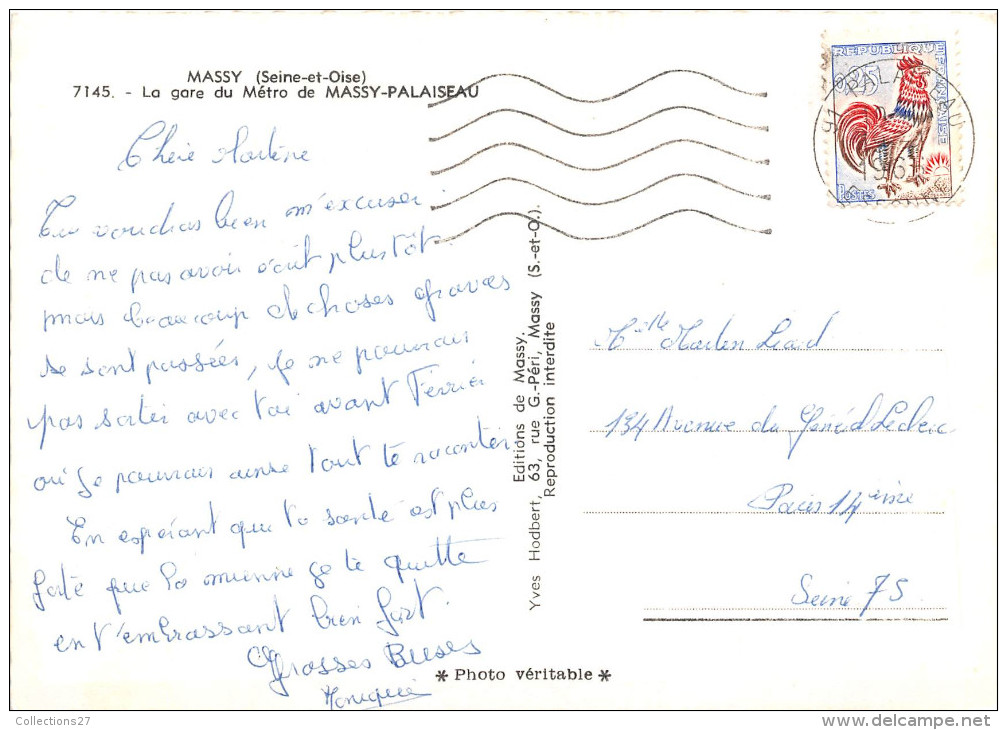 MASSY (Seine-et-Oise)
7145. - La gare du Métro de MASSY-PALAISEAU
RÉPUBLIQUE FRANÇAISE
0,25
POSTES
91 PALAISEAU
1967
Chère Martène
Tu voudras bien m'excuser
de ne pas avoir écrit plustôt.
mais beaucoup de choses graves
se sont passées, je ne pourrais
pas sortir avec toi avant Février
où je pourrais ainsi tout te raconter
En espérant que ta santé est plus
forte que la mienne je te quitte
en t'embrassant bien fort.
Grosses Bises
Monique
Editions de Massy.
Yves Hodbert, 63, rue G.-Péri, Massy (S.-et-O.).
Reproduction interdite
Mlle Marlen
134 Avenue du Général Leclerc
Paris 14ème
Seine 75
* Photo véritable *
Collections27
delcampe.net